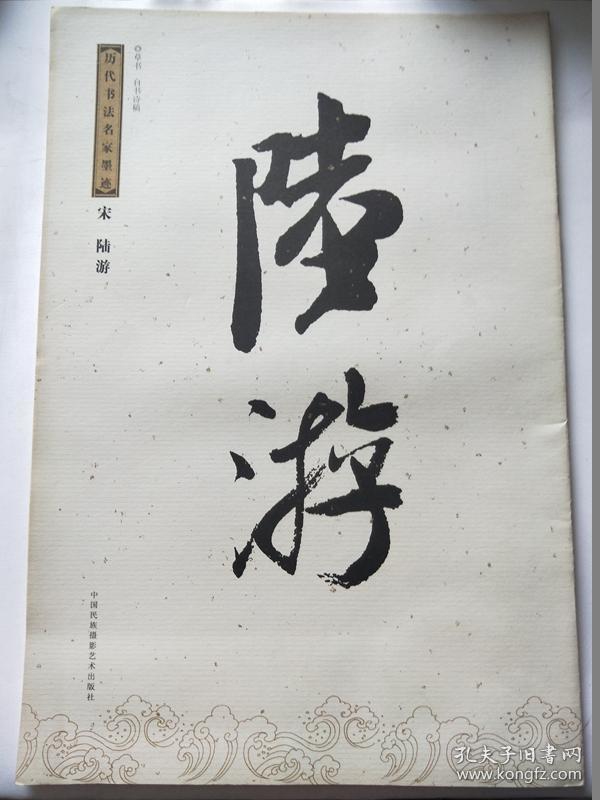 ◎草书 自书诗稿
【历代书法名家墨迹】
宋 陆游
陸游
中国民族摄影艺术出版社
孔夫子旧书网
www.kongfz.com